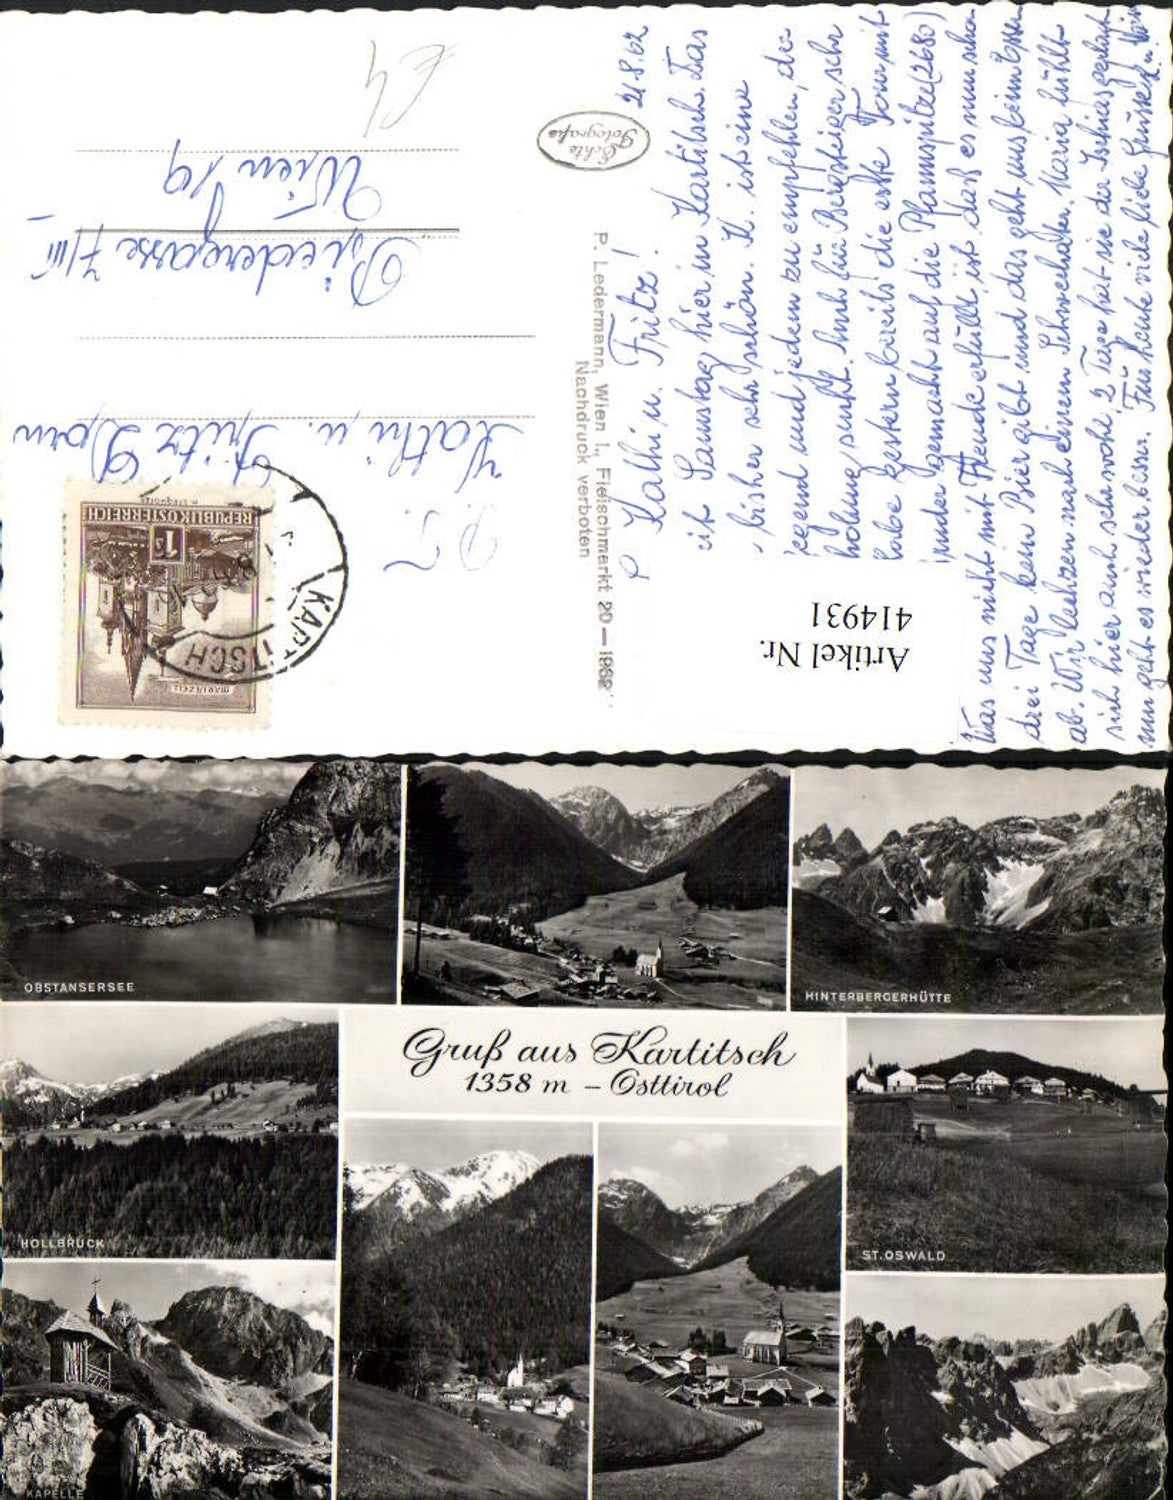 21.8.62
Kathi u. Fritz!
ich Samstag hier in Kartitsch. Das
bisher sehr schön. K. ist eine
gegend und jedem zu empfehlen, der
holung sucht. Auch für Bergsteiger sehr
habe gestern bereits die erste Tour mit
gemacht auf die Pfannspitze (2680)
Was uns nicht mit Freude erfüllt, ist daß es nun schon
drei Tage kein Bier gibt und das geht uns beim Essen
ab. Wir lechzen nach einem Schwechater. Hans fühlt
sich hier auch sehr wohl. 2 Tage hat sie der Ischias geplagt
nun geht es wieder besser. Für heute viele liebe Grüsse
Echte
Fotografie
P. Ledermann, Wien I., Fleischmarkt 20 — 1962
Nachdruck verboten
Artikel Nr.
414931
REPUBLIK ÖSTERREICH
1 S
MARIAZELL
KARTITSCH
KARTITSCH
P. T.
Kathi u. Fritz Dorn
7/III
Wien 19
€4
OBSTANSERSEE
HINTERBERGERHÜTTE
Gruß aus Kartitsch
1358 m – Osttirol
HOLLBRUCK
ST. OSWALD
KAPELLE